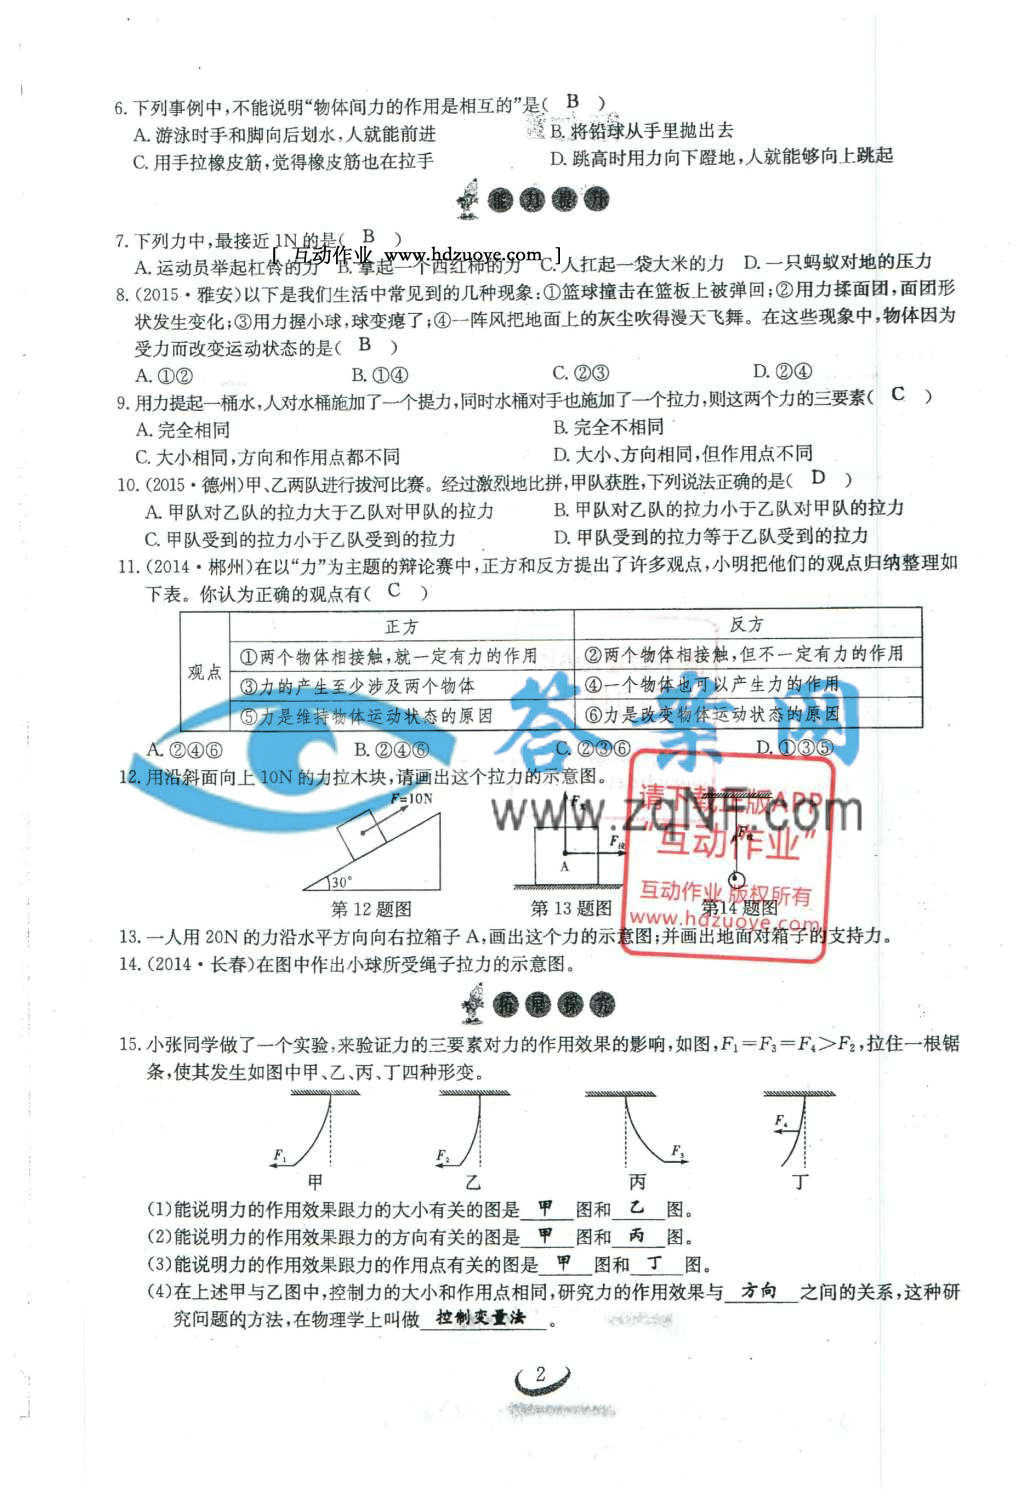 6. 下列事例中,不能说明“物体间力的作用是相互的”是( B )
A. 游泳时手和脚向后划水,人就能前进 B. 将铅球从手里抛出去
C. 用手拉橡皮筋,觉得橡皮筋也在拉手 D. 跳高时用力向下蹬地,人就能够向上跳起
能力提升
7. 下列力中,最接近 1N 的是( B )
[ 互动作业 www.hdzuoye.com ]
A. 运动员举起杠铃的力 B. 拿起一个西红柿的力 C. 人扛起一袋大米的力 D. 一只蚂蚁对地的压力
8. (2015·雅安)以下是我们生活中常见到的几种现象:①篮球撞击在篮板上被弹回;②用力揉面团,面团形
状发生变化;③用力握小球,球变瘪了;④一阵风把地面上的灰尘吹得漫天飞舞。在这些现象中,物体因为
受力而改变运动状态的是( B )
A. ①② B. ①④ C. ②③ D. ②④
9. 用力提起一桶水,人对水桶施加了一个提力,同时水桶对手也施加了一个拉力,则这两个力的三要素( C )
A. 完全相同 B. 完全不相同
C. 大小相同,方向和作用点都不同 D. 大小、方向相同,但作用点不同
10. (2015·德州)甲、乙两队进行拔河比赛。经过激烈地比拼,甲队获胜,下列说法正确的是( D )
A. 甲队对乙队的拉力大于乙队对甲队的拉力 B. 甲队对乙队的拉力小于乙队对甲队的拉力
C. 甲队受到的拉力小于乙队受到的拉力 D. 甲队受到的拉力等于乙队受到的拉力
11. (2014·郴州)在以“力”为主题的辩论赛中,正方和反方提出了许多观点,小明把他们的观点归纳整理如
下表。你认为正确的观点有( C )
观点 正方 反方
①两个物体相接触,就一定有力的作用 ②两个物体相接触,但不一定有力的作用
③力的产生至少涉及两个物体 ④一个物体也可以产生力的作用
⑤力是维持物体运动状态的原因 ⑥力是改变物体运动状态的原因
答案网
A. ②④⑥ B. ②④⑥ C. ②③⑥ D. ①③⑤
12. 用沿斜面向上 10N 的力拉木块,请画出这个拉力的示意图。
www.zqNF.com
请下载正版APP
“互动作业”
互动作业 版权所有
www.hdzuoye.com
F=10N
30°
F支
F拉
A
F拉
第 12 题图 第 13 题图 第14 题图
13. 一人用 20N 的力沿水平方向向右拉箱子 A,画出这个力的示意图;并画出地面对箱子的支持力。
14. (2014·长春)在图中作出小球所受绳子拉力的示意图。
拓展探究
15. 小张同学做了一个实验,来验证力的三要素对力的作用效果的影响,如图,F₁=F₃=F₄>F₂,拉住一根锯
条,使其发生如图中甲、乙、丙、丁四种形变。
F₁ F₂ F₃ F₄
甲 乙 丙 丁
(1)能说明力的作用效果跟力的大小有关的图是 甲 图和 乙 图。
(2)能说明力的作用效果跟力的方向有关的图是 甲 图和 丙 图。
(3)能说明力的作用效果跟力的作用点有关的图是 甲 图和 丁 图。
(4)在上述甲与乙图中,控制力的大小和作用点相同,研究力的作用效果与 方向 之间的关系,这种研
究问题的方法,在物理学上叫做 控制变量法 。
2